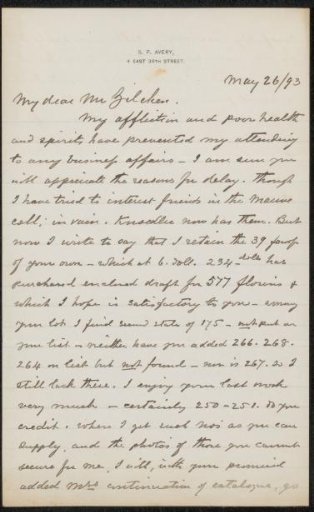 S. P. AVERY,
4 EAST 38TH STREET.
May 26/93
My dear Mr Zilcken.
My affliction and poor health
and spirits have prevented my attending
to any business affairs - I am sure you
will appreciate the reasons for delay. Though
I have tried to interest friends in the
coll; in vain. Knoedler now has them. But
now I write to say that I retain the 39
of your own - which at 6. doll. 234 - dolls has
purchased enclosed draft for 577 florins &
which I hope is satisfactory to you - among
your lot I find second state of 175 - not put on
your list - neither have you added 266. 268.
264 on list but not found - nor is 267. so I
still lack these. I enjoy your last work
very much - certainly 250 - 251. do you
credit. where I get such nos as you can
supply, and the photos of those you cannot
secure for me, I will, with your promised
added Mss continuation of catalogue, go